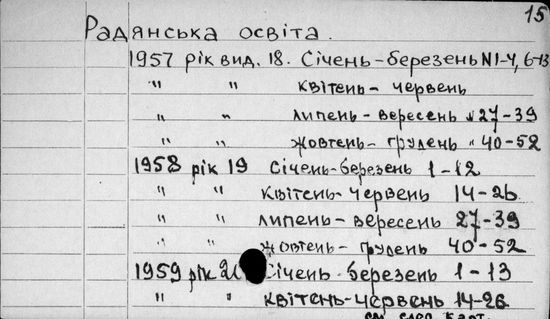 15
Радянська освіта.
1957 рік вид. 18. Січень-березень N1-4, 6-13
" " квітень- червень
" " липень- вересень " 27-39
" " жовтень- грудень " 40-52
1958 рік 19 Січень-березень 1-12
" " квітень- червень 14-26
" " липень- вересень 27-39
" " жовтень- грудень 40-52
1959 рік Січень-березень 1-13
" " квітень-червень 14-26
см. след. карт.